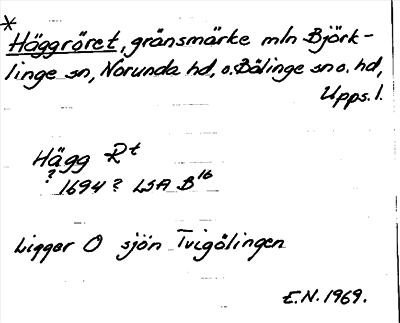 *
Häggröret, gränsmärke mln Björk-
linge sn, Norunda hd, o. Bälinge sn o. hd,
Upps. l.
Hägg Rt
? 1694? LSA B16
Ligger O sjön Tvigölingen
E.N. 1969.